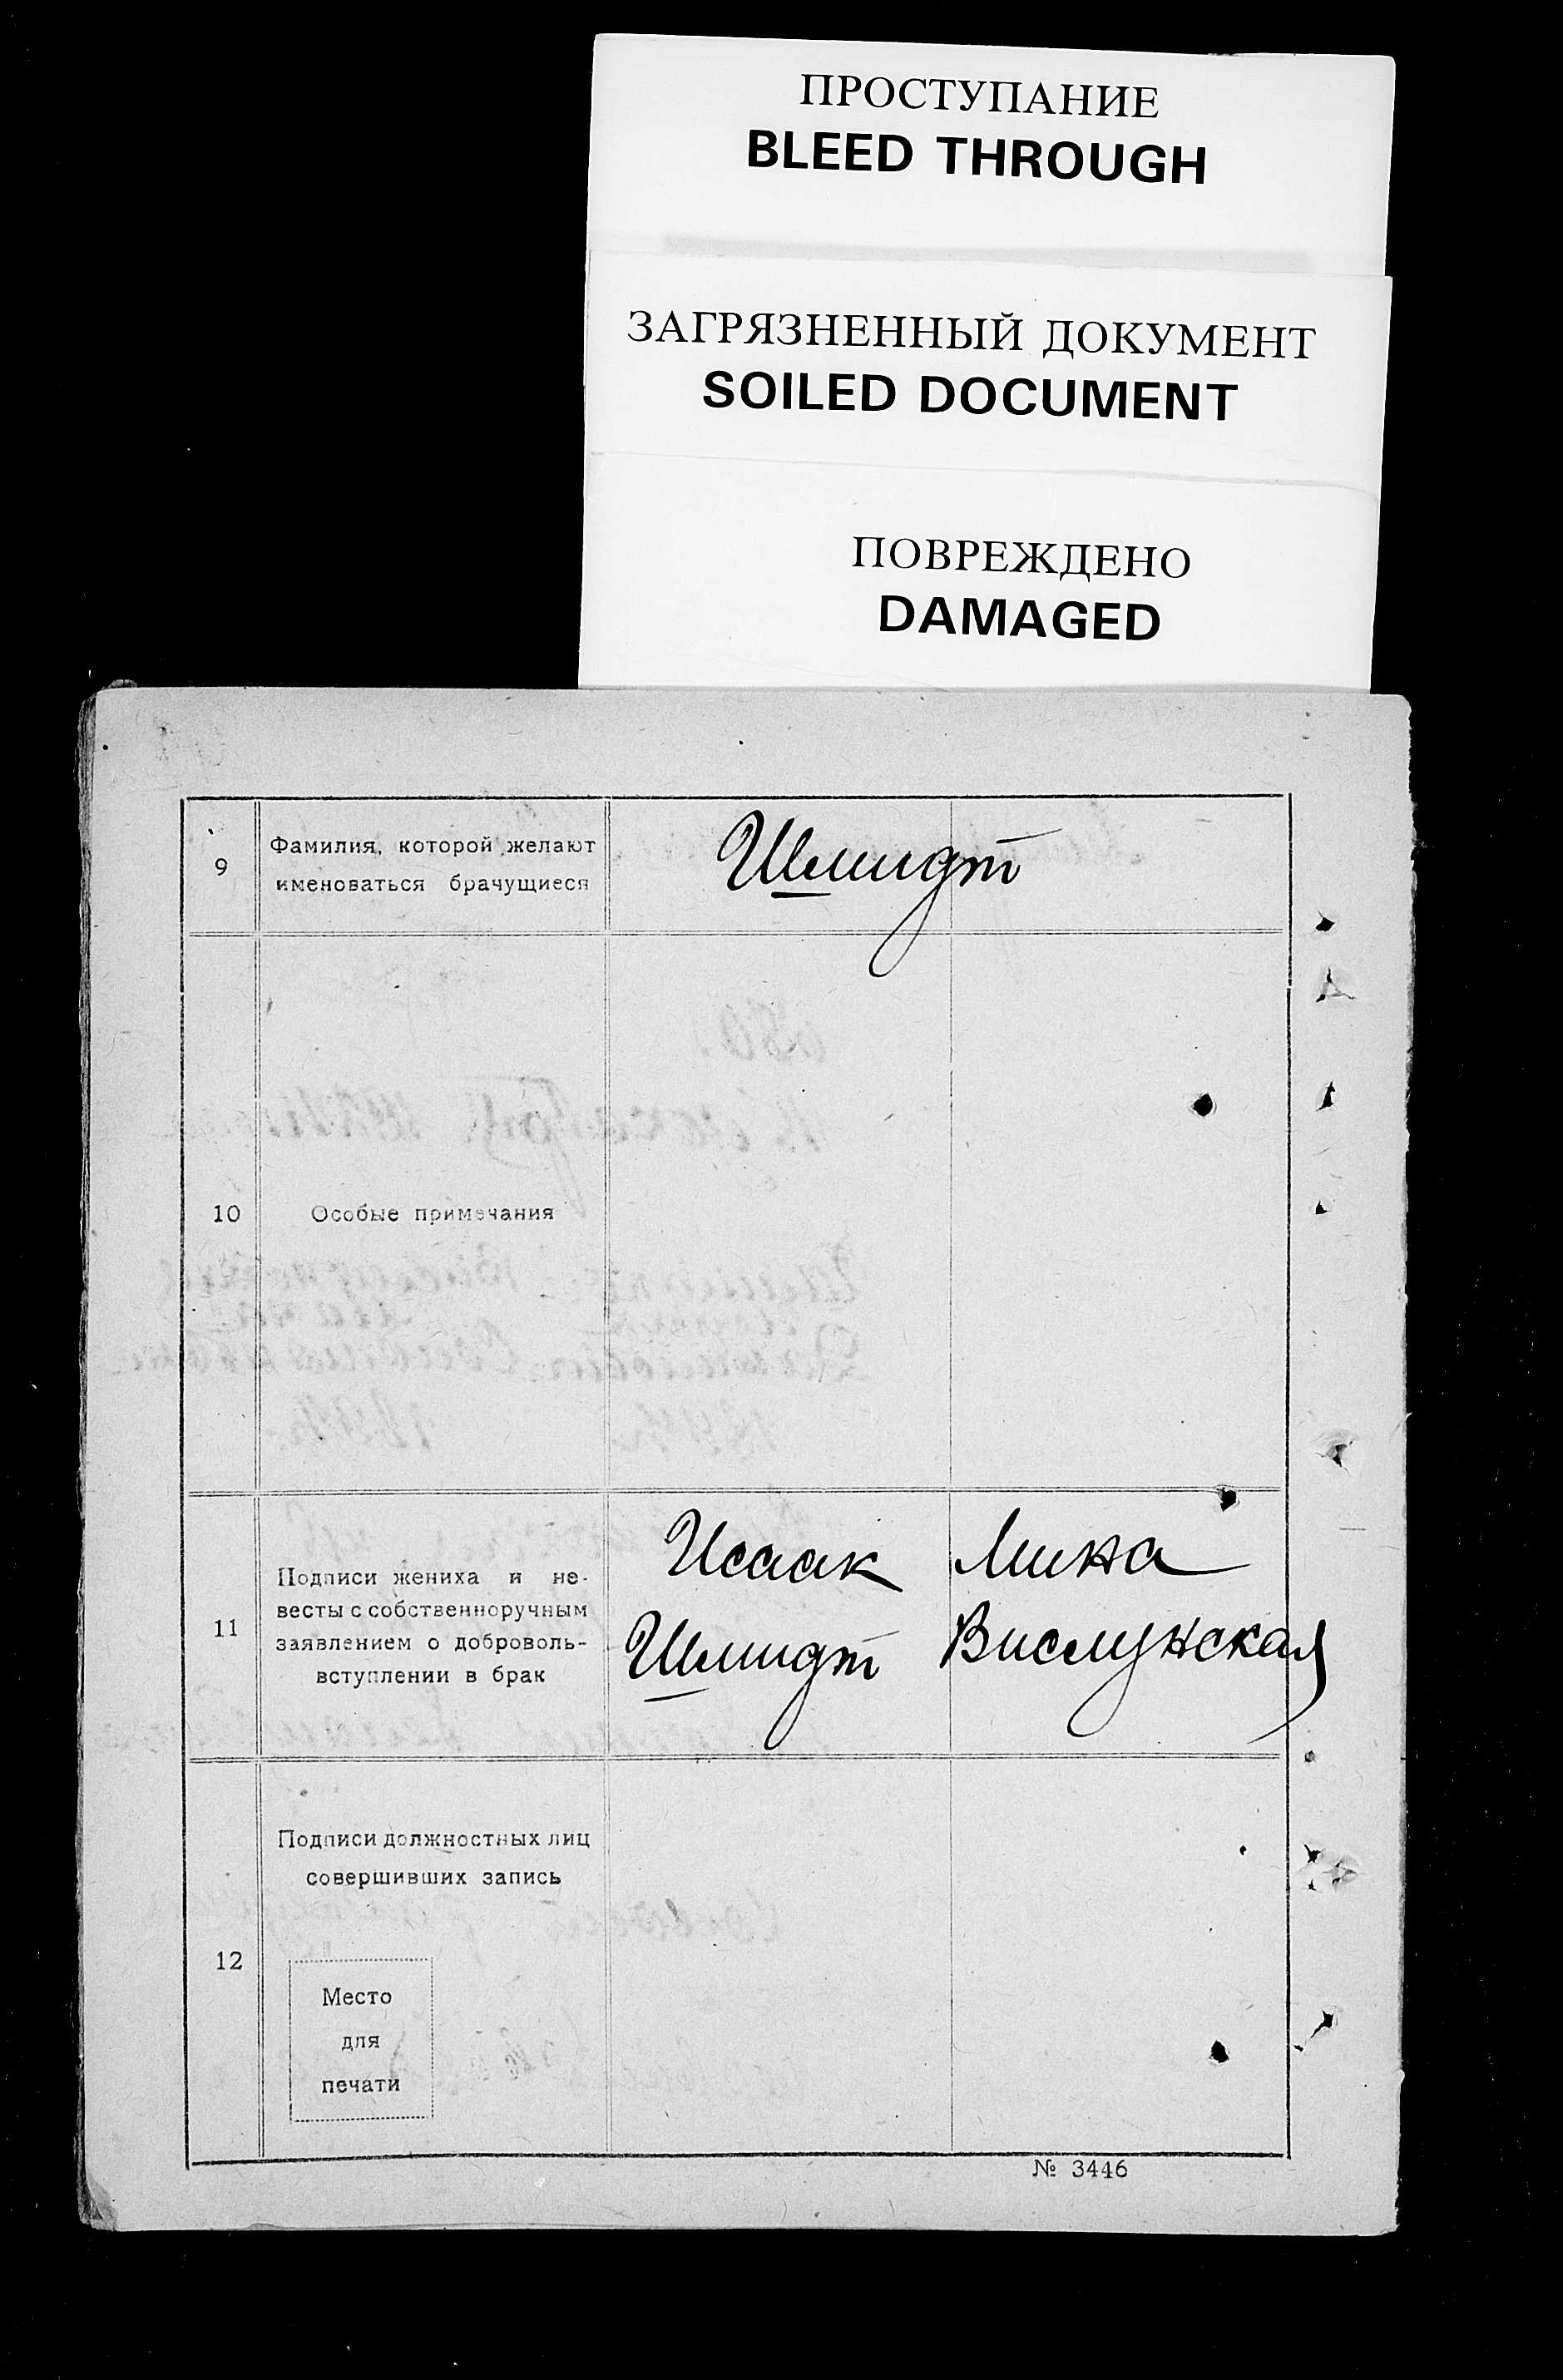 ПРОСТУПАНИЕ
BLEED THROUGH
ЗАГРЯЗНЕННЫЙ ДОКУМЕНТ
SOILED DOCUMENT
ПОВРЕЖДЕНО
DAMAGED
9
Фамилия, которой желают
именоваться брачущиеся
Шмидт
10
Особые примечания
11
Подписи жениха и не-
весты с собственноручным
заявлением о доброволь-
вступлении в брак
Исаак
Шмидт
Мина
Вислунская
12
Подписи должностных лиц
совершивших запись
Место
для
печати
№ 3446